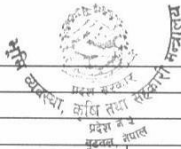 प्रदेश सरकार
भूमि व्यवस्था, कृषि तथा सहकारी मन्त्रालय
प्रदेश नं ५
बुटवल, नेपाल